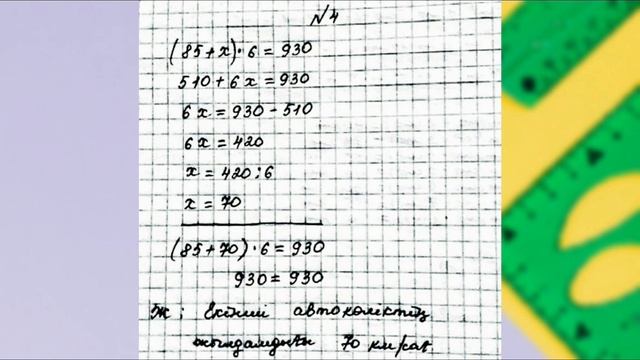 №4
(85+x)·6=930
510+6x=930
6x=930-510
6x=420
x=420:6
x=70
(85+70)·6=930
930=930
Ж: Екінші автокөліктің
жылдамдығы 70 км/сағ